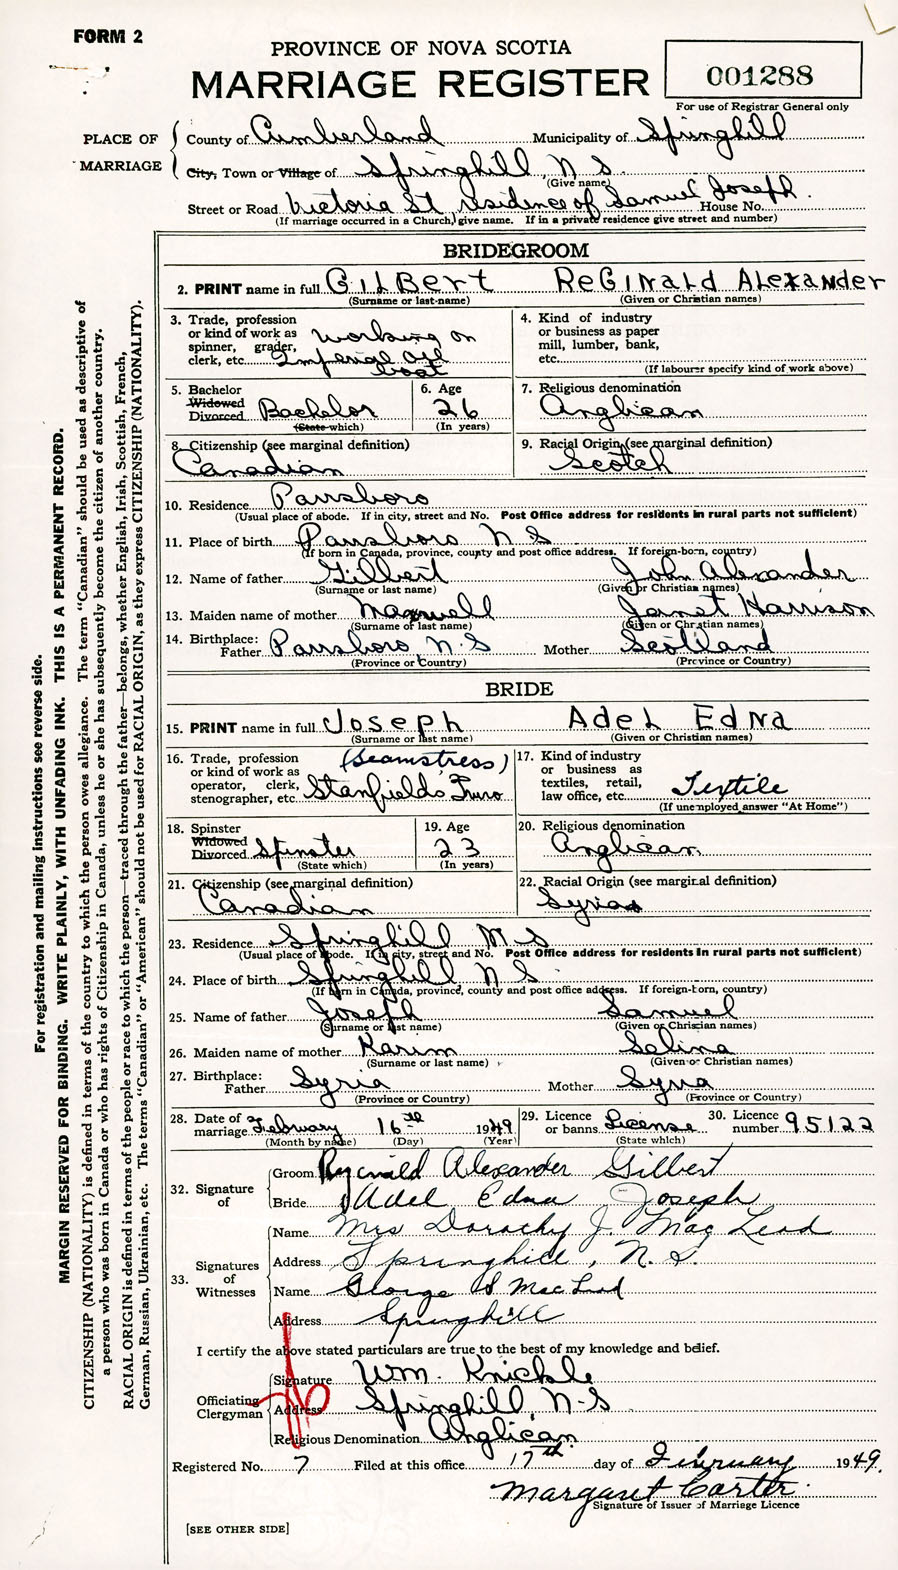 FORM 2
PROVINCE OF NOVA SCOTIA
MARRIAGE REGISTER
001288
For use of Registrar General only
PLACE OF MARRIAGE
County of Cumberland Municipality of Springhill
City, Town or Village of Springhill, N S.
(Give name)
Street or Road Victoria St, residence of Samuel Joseph. House No.
(If marriage occurred in a Church, give name. If in a private residence give street and number)
BRIDEGROOM
2. PRINT name in full GILBERT REGINALD ALEXANDER
(Surname or last name) (Given or Christian names)
3. Trade, profession or kind of work as spinner, grader, clerk, etc. working on Imperial Oil boat
4. Kind of industry or business as paper mill, lumber, bank, etc.
(If labourer specify kind of work above)
5. Bachelor Widowed Divorced Bachelor
(State which)
6. Age 26
(In years)
7. Religious denomination Anglican
8. Citizenship (see marginal definition) Canadian
9. Racial Origin (see marginal definition) Scotch
10. Residence Parrsboro
(Usual place of abode. If in city, street and No. Post Office address for residents in rural parts not sufficient)
11. Place of birth Parrsboro N S
(If born in Canada, province, county and post office address. If foreign-born, country)
12. Name of father Gilbert John Alexander
(Surname or last name) (Given or Christian names)
13. Maiden name of mother Maxwell Janet Harrison
(Surname or last name) (Given or Christian names)
14. Birthplace: Father Parrsboro, N.S Mother Scotland
(Province or Country) (Province or Country)
BRIDE
15. PRINT name in full JOSEPH ADEL EDNA
(Surname or last name) (Given or Christian names)
16. Trade, profession or kind of work as operator, clerk, stenographer, etc. (Seamstress) Stanfields Truro
17. Kind of industry or business as textiles, retail, law office, etc. Textile
(If unemployed answer "At Home")
18. Spinster Widowed Divorced Spinster
(State which)
19. Age 23
(In years)
20. Religious denomination Anglican
21. Citizenship (see marginal definition) Canadian
22. Racial Origin (see marginal definition) Syrian
23. Residence Springhill N S
(Usual place of abode. If in city, street and No. Post Office address for residents in rural parts not sufficient)
24. Place of birth Springhill N S
(If born in Canada, province, county and post office address. If foreign-born, country)
25. Name of father Joseph Samuel
(Surname or last name) (Given or Christian names)
26. Maiden name of mother Karim Selina
(Surname or last name) (Given or Christian names)
27. Birthplace: Father Syria Mother Syria
(Province or Country) (Province or Country)
28. Date of marriage February 16th 1949
(Month by name) (Day) (Year)
29. Licence or banns License
(State which)
30. Licence number 95122
32. Signature of
Groom Reginald Alexander Gilbert
Bride Adel Edna Joseph
33. Signatures of Witnesses
Name Mrs Dorothy J. MacLeod
Address Springhill, N.S.
Name George S MacLeod
Address Springhill
I certify the above stated particulars are true to the best of my knowledge and belief.
Officiating Clergyman
Signature Wm. Knickle
Address Springhill, N-S
Religious Denomination Anglican
Registered No. 7 Filed at this office 17th day of February 1949.
Margaret Carter
Signature of Issuer of Marriage Licence
[SEE OTHER SIDE]
For registration and mailing instructions see reverse side.
MARGIN RESERVED FOR BINDING. WRITE PLAINLY, WITH UNFADING INK. THIS IS A PERMANENT RECORD.
CITIZENSHIP (NATIONALITY) is defined in terms of the country to which the person owes allegiance. The term "Canadian" should be used as descriptive of
a person who was born in Canada or who has rights of Citizenship in Canada, unless he or she has subsequently become the citizen of another country.
RACIAL ORIGIN is defined in terms of the people or race to which the person—traced through the father—belongs, whether English, Irish, Scottish, French,
German, Russian, Ukrainian, etc. The terms "Canadian" or "American" should not be used for RACIAL ORIGIN, as they express CITIZENSHIP (NATIONALITY).